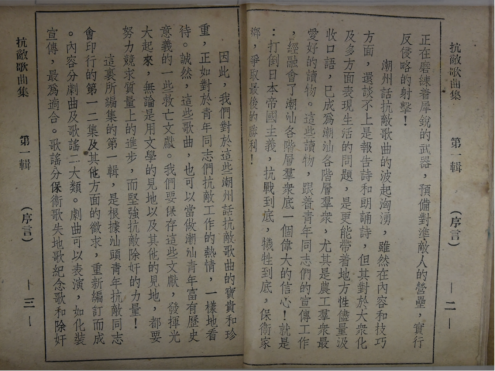 抗敵歌曲集 第一輯 (序言) —二—
正在磨練着犀銳的武器，預備對準敵人的營壘，實行
反侵略的射擊！
潮州話抗敵歌曲的波起洶湧，雖然在內容和技巧
方面，還談不上是報告詩和朗誦詩，但其對於大衆化
及多方面要現生活的問題，是更能帶着地方性儘量汲
收口語，已成為潮汕各階層羣衆，尤其是農工羣衆最
愛好的讀物。這些讀物，跟着青年同志們的宣傳工作
，經融會了潮汕各階層羣衆底一個偉大的信心！就是
：打倒日本帝國主義，抗戰到底，犧牲到底，保衛家
鄉，爭取最後的勝利！
因此，我們對於這些潮州話抗敵歌曲的寶貴和珍
重，正如對於青年同志們抗敵工作的熱情，一樣地看
待。誠然，這些歌曲，也可以當做潮汕青年富有歷史
意義的一些救亡文獻。我們要保存這些文獻，發揮光
大起來，無論是用文學的見地以及其他的見地，都要
努力競求質量上的進步，而堅強抗敵除奸的力量！
這裏所編集的第一輯，是根據汕頭青年抗敵同志
會印行的第一二集及其他方面的徵求，重新編訂而成
。內容分劇曲及歌謠二大類。劇曲可以表演，如化裝
宣傳，最為適合。歌謠分保衛歌失地歌紀念歌和除奸
抗敵歌曲集 第一輯 (序言) —三—